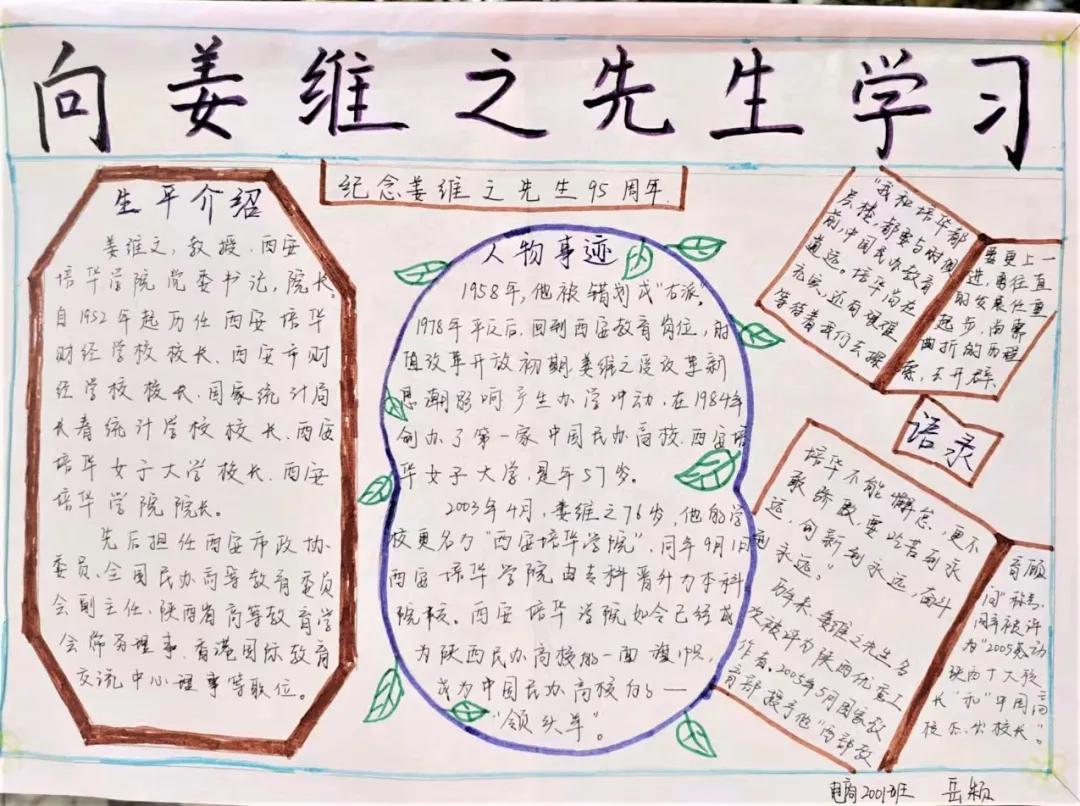 向姜维之先生学习
纪念姜维之先生95周年
生平介绍
姜维之，教授，西安
培华学院党委书记，院长。
自1952年起历任西安培华
财经学校校长、西安市财
经学校校长、国家统计局
长春统计学校校长、西安
培华女子大学校长、西安
培华学院院长。
先后担任西安市政协
委员、全国民办高等教育委员
会副主任、陕西省高等教育学
会常务理事、香港国际教育
交流中心理事等职位。
人物事迹
1958年，他被错划成“右派”。
1978年平反后，回到西安教育岗位，时
值改革开放初期，姜维之受改革新
思潮影响产生办学冲动，在1984年
创办了第一家中国民办高校.西安培
华女子大学，是年57岁。
2003年4月，姜维之76岁，他的学
校更名为“西安培华学院”，同年9月1日
西安培华学院由专科晋升为本科
院校。西安培华学院如今已经成
为陕西民办高校的一面旗帜，
成为中国民办高校的一
“领头羊”。
“我和培华都
层楼，都要与时俱
前，中国民办教育
道远。培华尚在
充实、还有很
等待着我们去探
要更上一
进，勇往直
的发展任重
起步，尚需
曲折的历程
索，去开辟、
语录
培华不能懈怠，更不
敢骄傲，要吃苦到永
远，向新到永远，奋斗
永远。”
历年来、姜维之先生多
次被评为陕西优秀工
作者，2005年5月国家教
育部授予他“西部教
育顾
问”称号，
同年被评
为“2005感动
陕西十大校
长”和“中国高
校杰出校长”。
电商2001班 岳颖